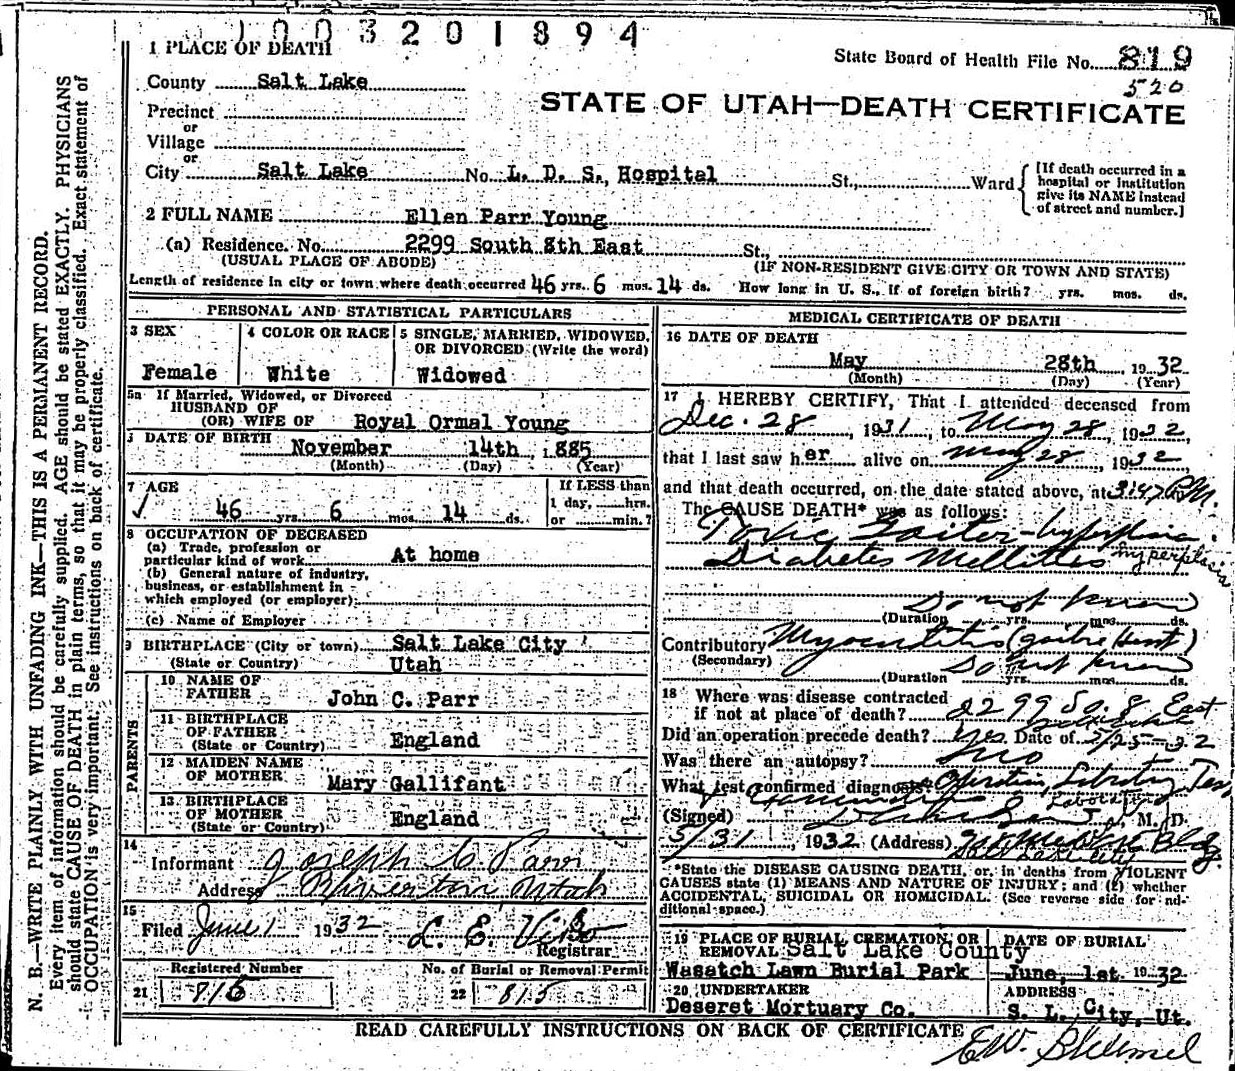 1003201894
1 PLACE OF DEATH
State Board of Health File No. 819
County Salt Lake
520
STATE OF UTAH—DEATH CERTIFICATE
Precinct
or
Village
or
City Salt Lake No. L. D. S., Hospital St., Ward
[If death occurred in a hospital or institution give its NAME instead of street and number.]
2 FULL NAME Ellen Parr Young
(a) Residence. No. 2299 South 8th East St.,
(USUAL PLACE OF ABODE) (IF NON-RESIDENT GIVE CITY OR TOWN AND STATE)
Length of residence in city or town where death occurred 46 yrs. 6 mos. 14 ds. How long in U. S., if of foreign birth? yrs. mos. ds.
PERSONAL AND STATISTICAL PARTICULARS
3 SEX
Female
4 COLOR OR RACE
White
5 SINGLE, MARRIED, WIDOWED, OR DIVORCED (Write the word)
Widowed
5a If Married, Widowed, or Divorced
HUSBAND OF
(OR) WIFE OF Royal Ormal Young
DATE OF BIRTH
November 14th 1885
(Month) (Day) (Year)
7 AGE
46 yrs. 6 mos. 14 ds.
If LESS than
1 day, hrs.
or min.?
8 OCCUPATION OF DECEASED
(a) Trade, profession or
particular kind of work At home
(b) General nature of industry,
business, or establishment in
which employed (or employer)
(c) Name of Employer
9 BIRTHPLACE (City or town) Salt Lake City
(State or Country) Utah
PARENTS
10 NAME OF
FATHER John C. Parr
11 BIRTHPLACE
OF FATHER England
(State or Country)
12 MAIDEN NAME
OF MOTHER Mary Gallifant
13 BIRTHPLACE
OF MOTHER England
(State or Country)
14
Informant Joseph C. Parr
Address Riverton, Utah
15
Filed June 1 1932 L. E. Viko
Registrar
Registered Number
21 816
No. of Burial or Removal Permit
22 815
MEDICAL CERTIFICATE OF DEATH
16 DATE OF DEATH
May 28th, 1932
(Month) (Day) (Year)
17 I HEREBY CERTIFY, That I attended deceased from
Dec. 28, 1931, to May 28, 1932,
that I last saw her alive on May 28, 1932
and that death occurred, on the date stated above, at 3:47 P.M.
The CAUSE DEATH* was as follows:
Toxic Goiter-hyperplasia
hyperplasia
Diabetes Mellitus
Do not know
(Duration yrs. mos. ds.
Contributory Myocarditis (goitre Heart)
(Secondary) Do not know
(Duration yrs. mos. ds.
18 Where was disease contracted
if not at place of death? 2299 So. 8 East
Did an operation precede death? Yes Date of 5/25-32
Was there an autopsy? no
What test confirmed diagnosis? Operation, Laboratory Tests
(Signed) M. D.
5/31, 1932 (Address) Bldg
Salt Lake City
*State the DISEASE CAUSING DEATH, or, in deaths from VIOLENT
CAUSES state (1) MEANS AND NATURE OF INJURY; and (2) whether
ACCIDENTAL, SUICIDAL OR HOMICIDAL. (See reverse side for ad-
ditional space.)
19 PLACE OF BURIAL, CREMATION, OR
REMOVAL Salt Lake County
Wasatch Lawn Burial Park
DATE OF BURIAL
June, 1st. 1932
20 UNDERTAKER
Deseret Mortuary Co.
ADDRESS
S. L. City, Ut.
READ CAREFULLY INSTRUCTIONS ON BACK OF CERTIFICATE
N. B.—WRITE PLAINLY WITH UNFADING INK—THIS IS A PERMANENT RECORD.
Every item of information should be carefully supplied. AGE should be stated EXACTLY. PHYSICIANS
should state CAUSE OF DEATH in plain terms, so that it may be properly classified. Exact statement of
OCCUPATION is very important. See instructions on back of certificate.